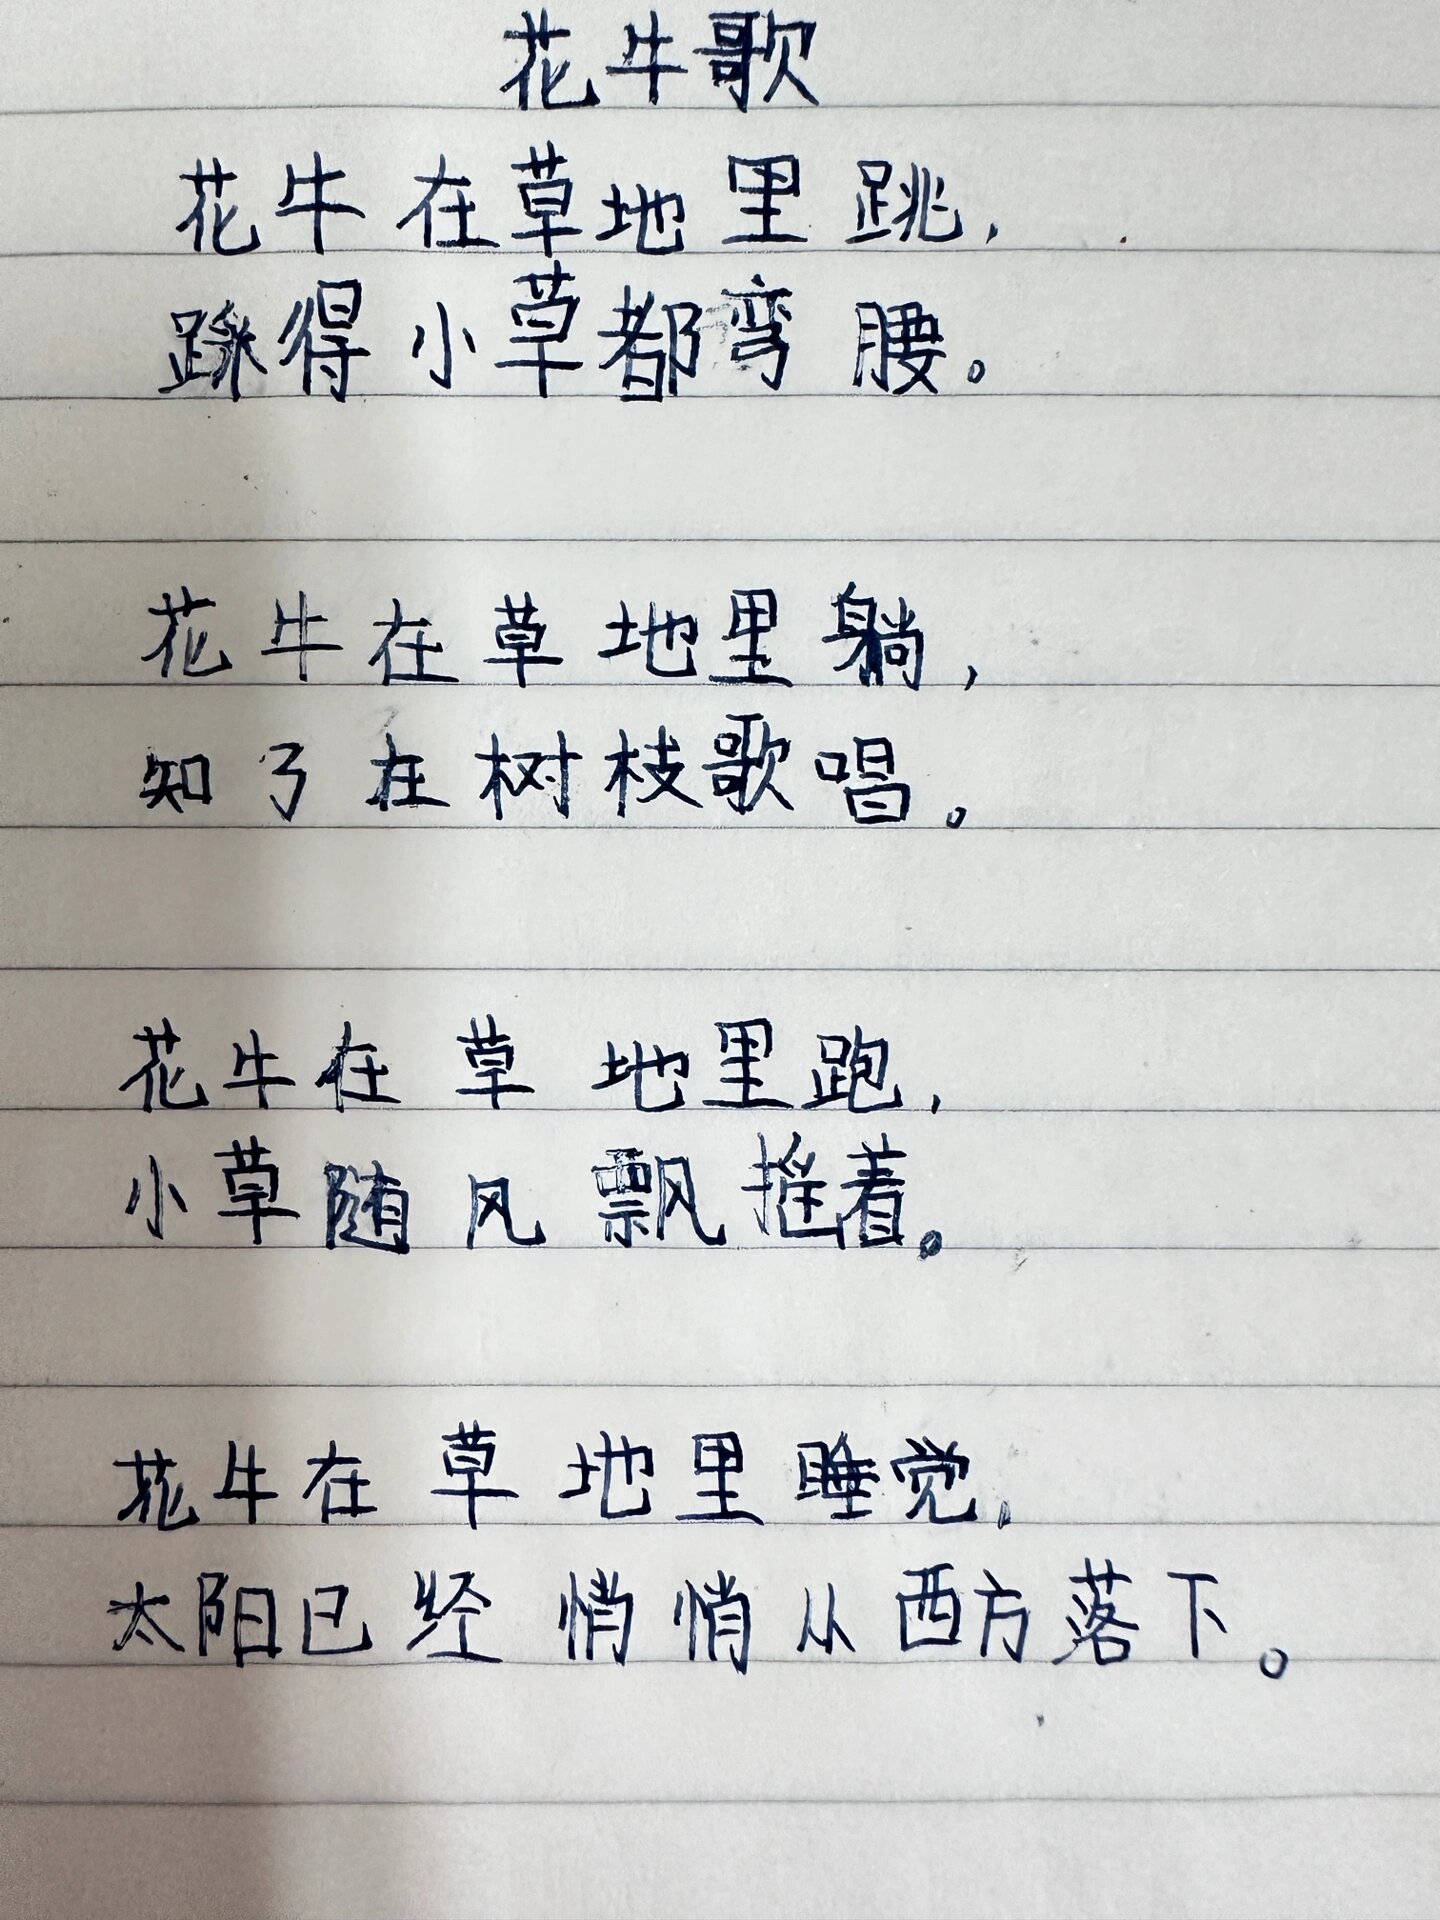 花牛歌
花牛在草地里跳,
踩得小草都弯腰。
花牛在草地里躺,
知了在树枝歌唱。
花牛在草地里跑,
小草随风飘摇着。
花牛在草地里睡觉,
太阳已经悄悄从西方落下。